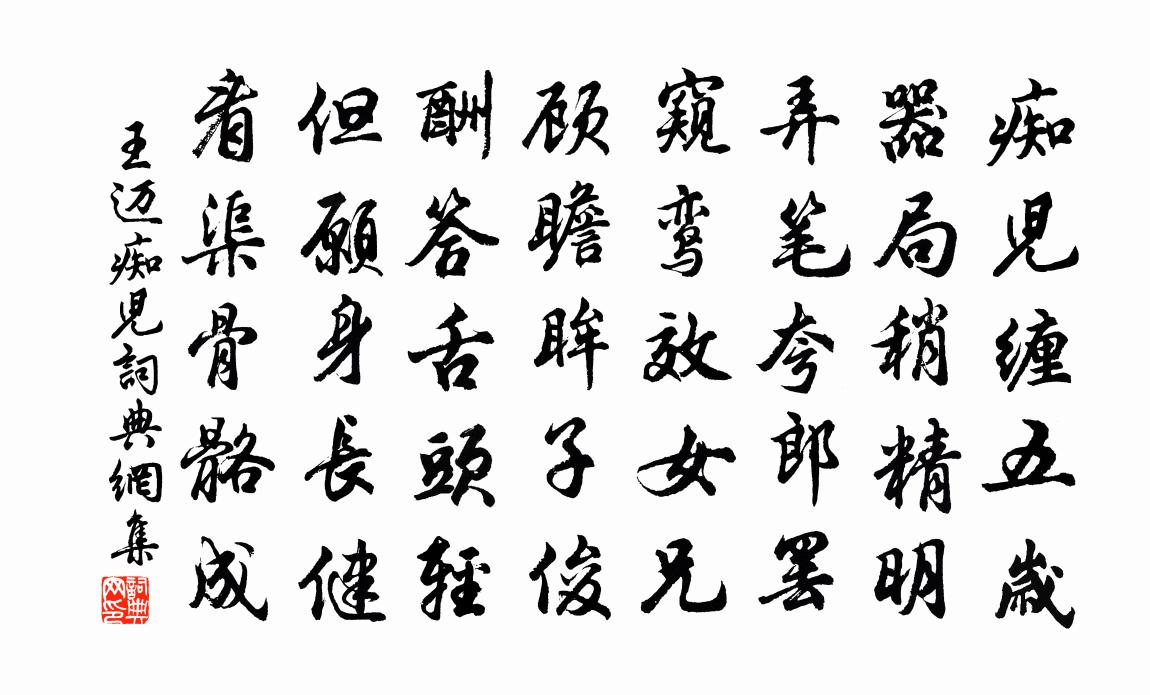 痴児缠五歳
器局稍精明
弄笔夸郎罢
窺鸾效女兄
顾瞻眸子俊
酬答舌頭輕
但願身長健
看渠骨骼成
王迈痴児詞典網集
詞典网印